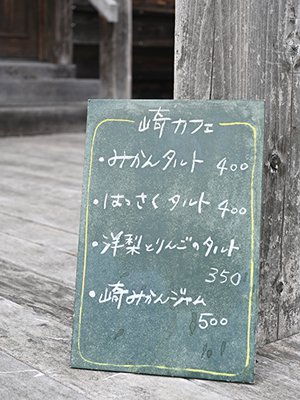 崎カフェ
・みかんタルト 400
・はっさくタルト 400
・洋梨とりんごのタルト
350
・崎みかんジャム
500